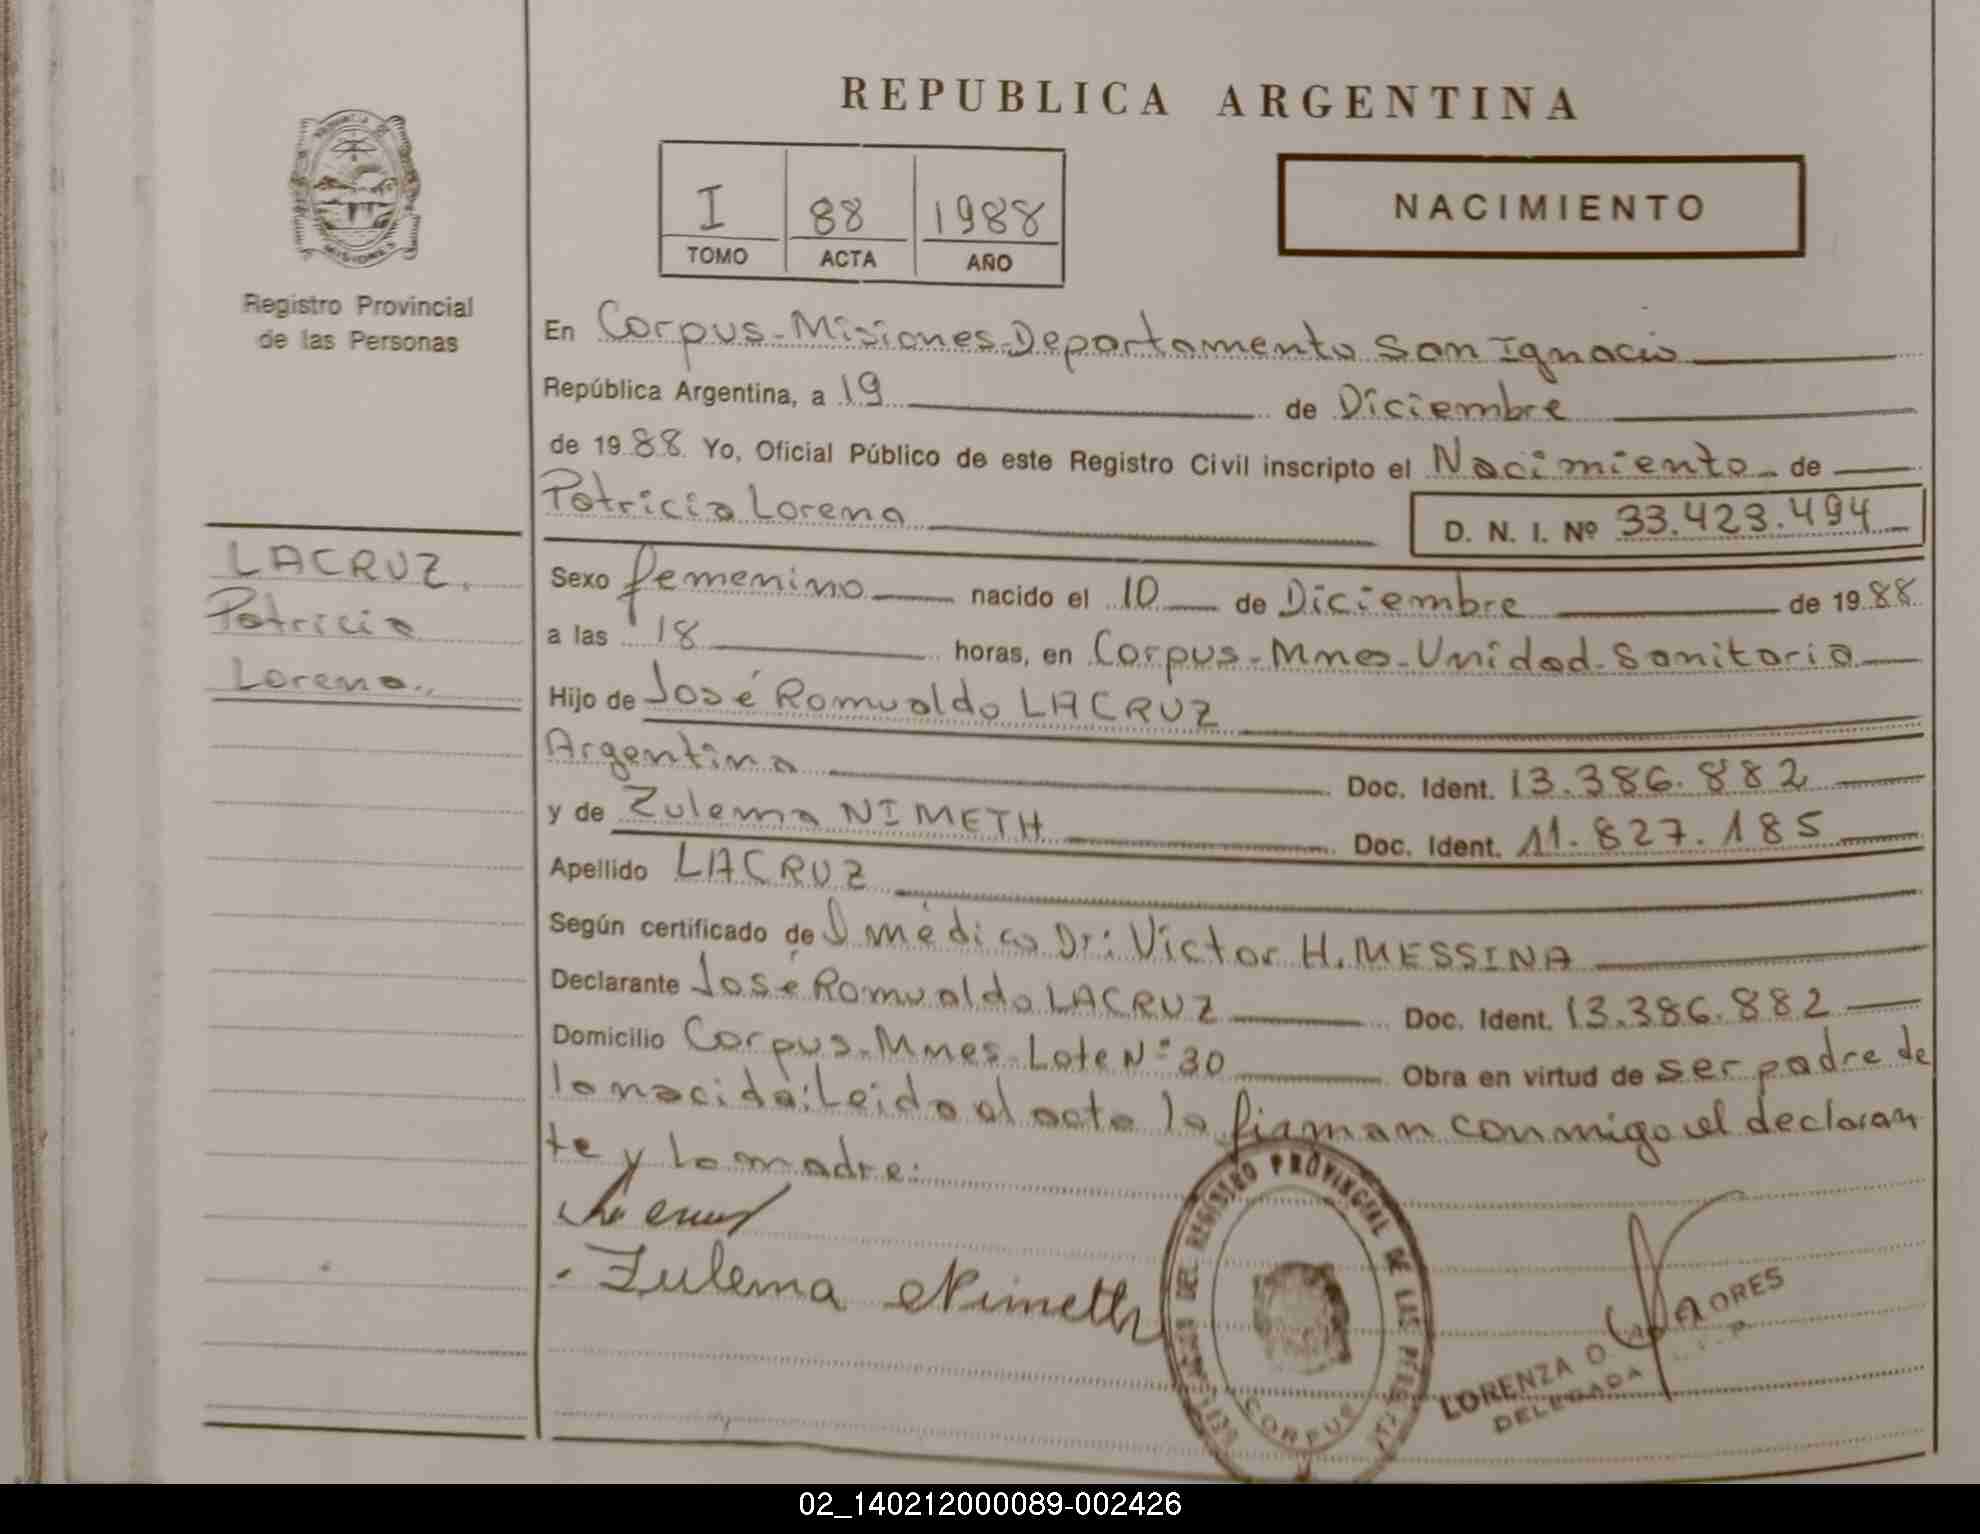 REPUBLICA ARGENTINA
PROVINCIA DE
MISIONES
Registro Provincial
de las Personas
I 88 1988
TOMO ACTA AÑO
NACIMIENTO
En Corpus-Misiones-Departamento San Ignacio
República Argentina, a 19 de Diciembre
de 1988 Yo, Oficial Público de este Registro Civil inscripto el Nacimiento de
Patricia Lorena
D. N. I. Nº 33.423.494
LACRUZ.
Patricia
Lorena..
Sexo femenino nacido el 10 de Diciembre de 1988
a las 18 horas, en Corpus-Mnes-Unidad-Sanitaria
Hijo de José Romualdo LACRUZ
Argentina Doc. Ident. 13.386.882
y de Zulema NIMETH Doc. Ident. 11.827.185
Apellido LACRUZ
Según certificado de médico Dr: Victor H. MESSINA
Declarante José Romualdo LACRUZ Doc. Ident. 13.386.882
Domicilio Corpus-Mnes-Lote Nº 30 Obra en virtud de ser padre de
la nacida: Leida al acta la firman conmigo el declaran
te y la madre:
Zulema Nimeth
DEL REGISTRO PROVINCIAL DE LAS
CORPUS
LORENZA O.
DELEGADA
02_140212000089-002426